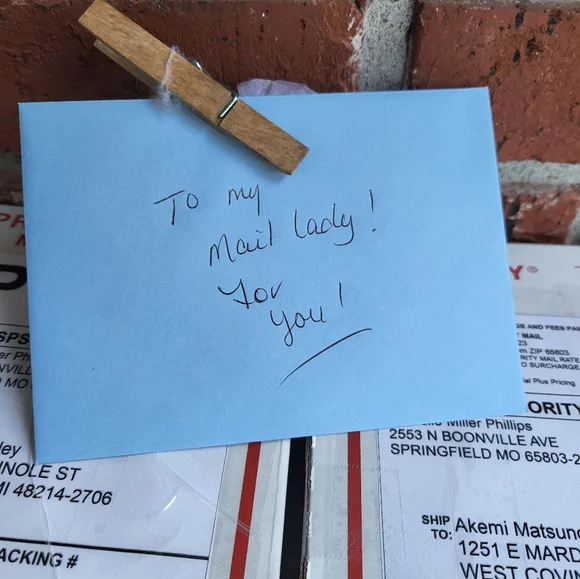 To my
Mail lady!
For
you!
SPS
VILL
MO
ley
INOLE ST
MI 48214-2706
ACKING #
Y®
GE AND FEES PAI
MAIL
23
m ZIP 65803
RITY MAIL RATE
O SURCHARGE
ial Plus Pricing
ORITY
Miller Phillips
2553 N BOONVILLE AVE
SPRINGFIELD MO 65803-2
SHIP
TO:
Akemi Matsuno
1251 E MARD
WEST COVIN